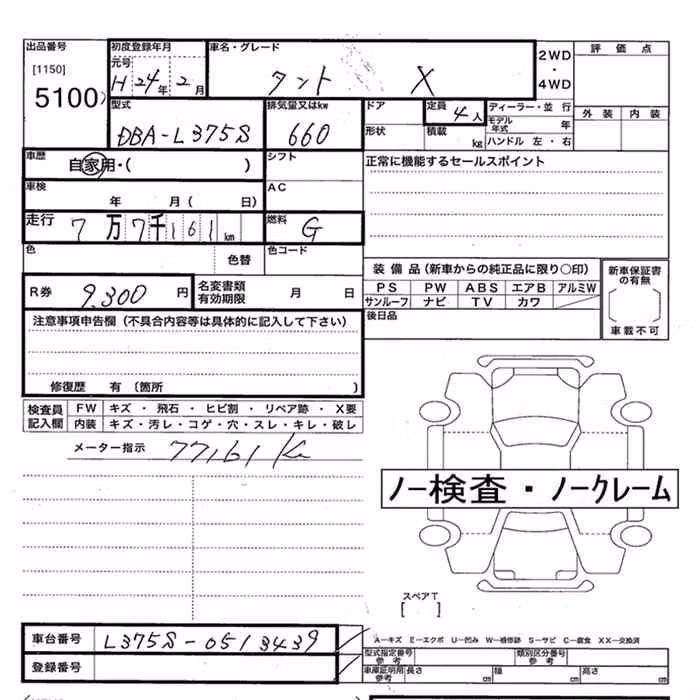 出品番号
[1150]
5100
初度登録年月
元号
H 24年 2月
車名・グレード
タント X
2WD
・
4WD
評価点
外装 内装
型式
DBA-L375S
排気量又はkw
660
ドア
形状
定員
4人
積載
kg
ディーラー・並 行
モデル年式 年
ハンドル 左・右
車歴
自家用・( )
シフト
正常に機能するセールスポイント
車検
年 月( 日)
AC
走行
7万7千161km
燃料
G
色
色替
色コード
R券
9,300 円
名変書類
有効期限
月 日
装備品(新車からの純正品に限り〇印)
PS PW ABS エアB アルミW
サンルーフ ナビ TV カワ
後日品
新車保証書
の有無
車載不可
注意事項申告欄(不具合内容等は具体的に記入して下さい)
修復歴 有〔箇所 )
検査員
記入欄
FW キズ・飛石・ヒビ割・リペア跡・X要
内装 キズ・汚レ・コゲ・穴・スレ・キレ・破レ
メーター指示
77,161 K
ノー検査・ノークレーム
スペアT
[ ]
車台番号
L375S-0513439
登録番号
A-キズ E-エクボ U-凹み W-補修跡 S-サビ C-腐食 XX-交換済
型式指定番号
参考
類別区分番号
参考
車庫証明用
参考
長さ cm
幅 cm
高さ cm